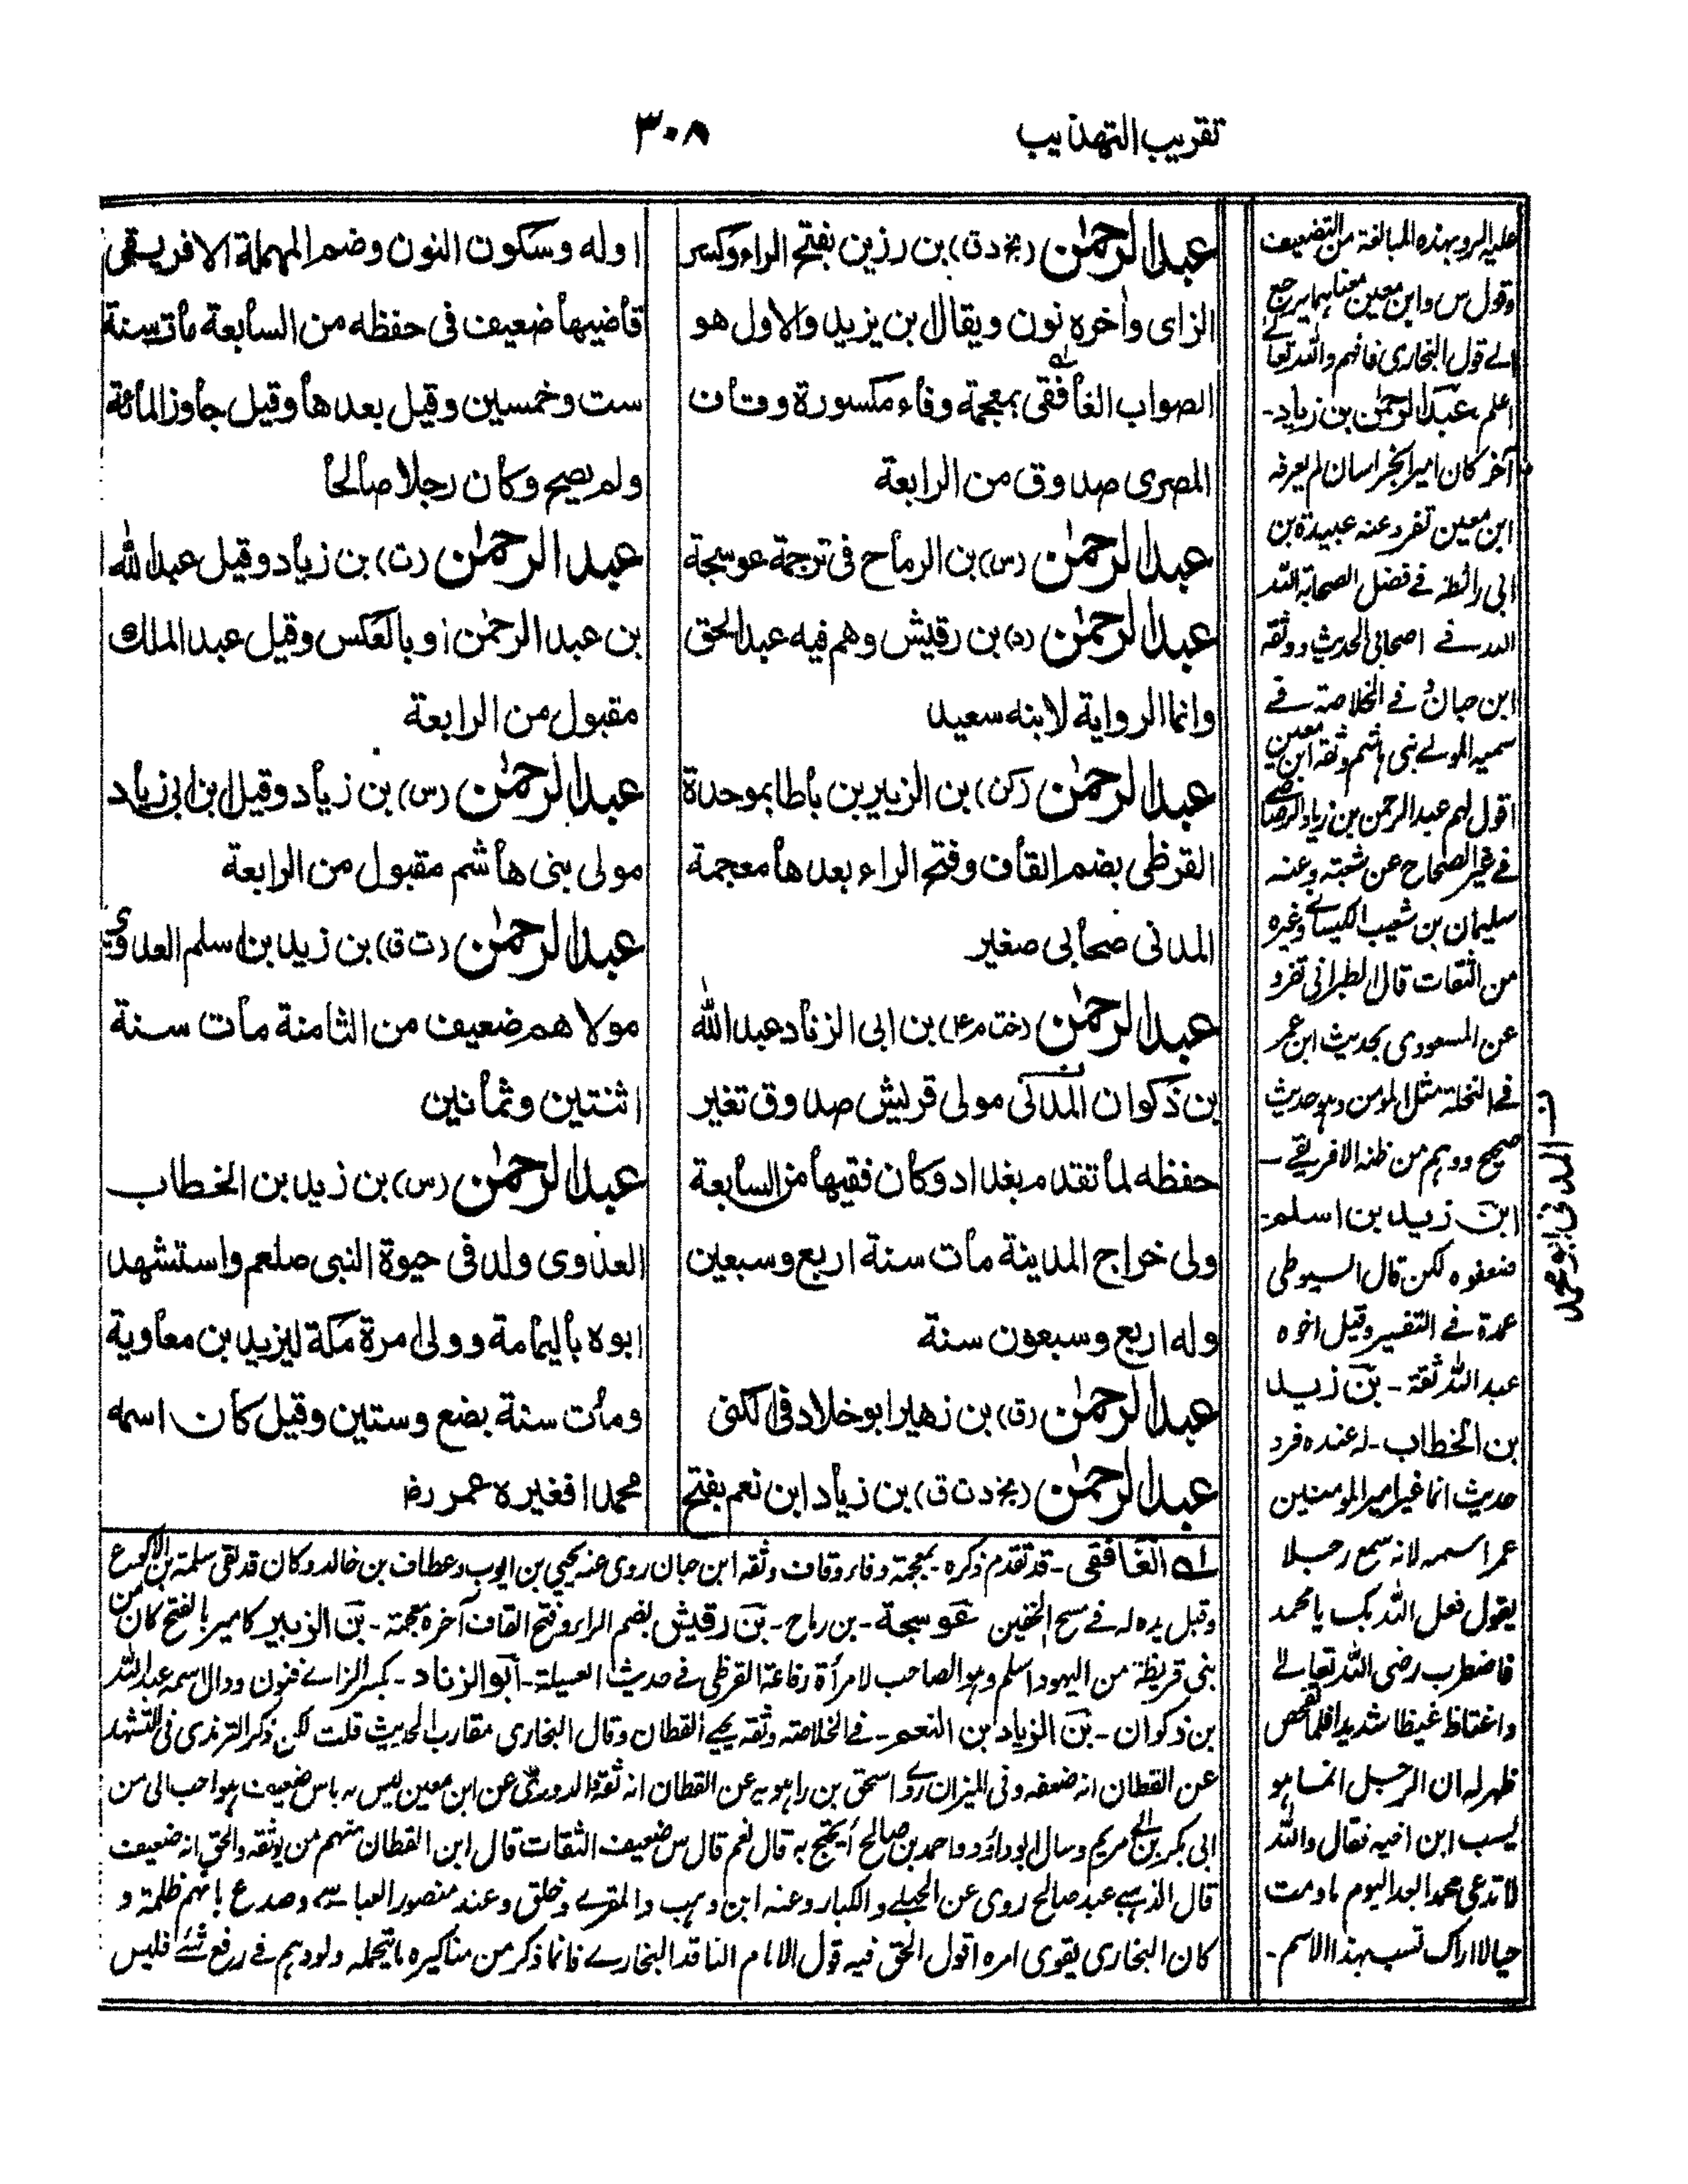 تقريب التهذيب
٣٠٨
عبدالرحمٰن (بخ د ق) بن رزين بفتح الراء وكسر
الزاى وأخره نون ويقال بن يزيد والاول هو
الصواب الغافقى بمعجمة وفاء مكسورة وقاف
المصرى صدوق من الرابعة
عبدالرحمٰن (س) بن الرماح فى ترجمة عوسجة
عبدالرحمٰن (د) بن رقيش وهم فيه عبدالحق
وانما الرواية لابنه سعيد
عبدالرحمٰن (كن) بن الزبير بن باطا بموحدة
القرظى بضم القاف وفتح الراء بعدها معجمة
المدنى صحابى صغير
عبدالرحمٰن (خت م ٤) بن ابى الزناد عبدالله
بن ذكوان المدنى مولى قريش صدوق تغير
حفظه لما تقدم بغداد وكان فقيها من السابعة
ولى خراج المدينة مات سنة اربع وسبعين
وله اربع وسبعون سنة
عبدالرحمٰن (ق) بن زهير ابو خلاد فى الكنى
عبدالرحمٰن (بخ د ت ق) بن زياد ابن نعم بفتح
اوله وسكون النون وضم المهملة الافريقى
قاضيها ضعيف فى حفظه من السابعة مات سنة
ست وخمسين وقيل بعدها وقيل جاوز المائة
ولم يصح وكان رجلا صالحا
عبدالرحمٰن (ت) بن زياد وقيل عبدالله
بن عبد الرحمٰن او بالعكس وقيل عبد الملك
مقبول من الرابعة
عبدالرحمٰن (س) بن زياد وقيل ابن ابى زياد
مولى بنى هاشم مقبول من الرابعة
عبدالرحمٰن (ت ق) بن زيد بن اسلم العدوى
مولاهم ضعيف من الثامنة مات سنة
اثنتين وثمانين
عبدالرحمٰن (س) بن زيد بن الخطاب
العدوى ولد فى حيوة النبى صلعم واستشهد
ابوه باليمامة وولى امرة مكة ليزيد بن معاوية
ومات سنة بضع وستين وقيل كان اسمه
محمدا فغيره عمر رض
عليه الرد بهذه المبالغة من التضعيف
وقول س وابن معين معناهما يرجع
الے قول البخارى فافهم والله تعالے
اعلم، عبدالرحمٰن بن زياد-
آخر كان اميرا بخراسان لم يعرفه
ابن معين تفرد عنه عبيدة بن
ابى رائطة فے فضل الصحابة الله
الله فے اصحابى الحديث ووثقه
ابن حبان و فے الخلاصة فے
سميه المولے بنى هاشم وثقه ابن معين
اقول لهم عبد الرحمن بن زياد الرصاصے
فے غير الصحاح عن شعبة وعنه
سليمان بن شعيب الكيسانے وغيره
من الثقات قال الطبرانى تفرد
عن المسعودى بحديث ابن عمر
فے النخلة مثل المومن وهو حديث
صحيح ووهم من ظنه الافريقے-
ابن زيد بن اسلم-
ضعفوه لكن قال السيوطى
عمدة فے التفسير وقيل اخوه
عبدالله ثقة - بن زيد
بن الخطاب- له عنده فرد
حديث انما غير امير المومنين
عمر اسمه لانه سمع رجلا
يقول فعل الله بك يا محمد
فاضطرب رضى الله تعالے
واغتاظ غيظا شديدا فلما تفحص
ظهر له ان الرجل انما هو
يسب ابن اخيه فقال والله
لا تدعى محمدا بعد اليوم ما دمت
حيا لا اراك تسب بهذا الاسم-
المدنى ابو محمد
له الغافقى- قد تقدم ذكره- بمعجمة وفاء وقاف وثقه ابن حبان روى عنه يحيى بن ايوب وعطاف بن خالد وكان قد لقى سلمة بن الاكوع
وقبل يده له فے مسح الخفين عوسجة- بن رماح- بن رقيش بضم الراء وفتح القاف آخره معجمة- بن الزبير كامير بالفتح كان من
بنى قريظة من اليهود اسلم وهو الصاحب لامرأة رفاعة القرظى فے حديث العسيلة- ابوالزناد- بكسر الزاے فنون ودال اسمه عبدالله
بن ذكوان- بن الزياد بن النعم- فے الخلاصة وثقه يحيے القطان وقال البخارى مقارب الحديث قلت لكن ذكر الترمذى فى التشهد
عن القطان انه ضعفه وفى الميزان روے اسحق بن راهويه عن القطان انه ثقة والدورى عن ابن معين ليس به باس ضعيف هو احب الى من
ابى بكر بن ابى مريم وسال ابوداؤد احمد بن صالح أيحتج به قال نعم قال س ضعيف الثقات قال ابن القطان منهم من يوثقه والحق انه ضعيف
قال الذهبے عبد صالح روى عن الحبلے والكبار وعنه ابن وهب والمقرے وخلق وعند منصور العباسے وصدع بانهم ظلمة و
كان البخارى يقوى امره اقول الحق فيه قول الامام الناقد البخارے فانما ذكر من مناكيره ما يتحمله ولو وهم فے رفع شئے فليس